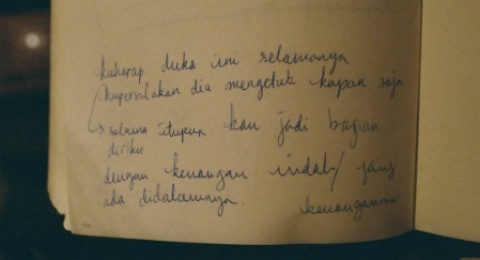 kuharap duka ini selamanya
kupersilakan dia mengetuk kapan saja
selama itupun kau jadi bagian
diriku
dengan kenangan indah/ yang
ada didalamnya.
kenanganmu